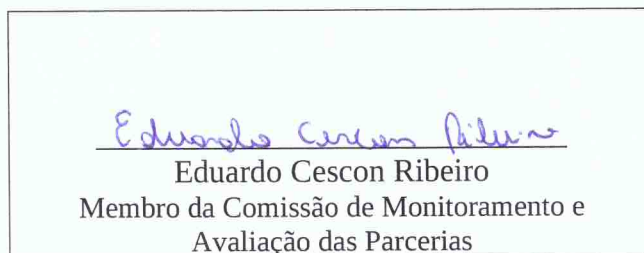 Eduardo Cescon Ribeiro
Eduardo Cescon Ribeiro
Membro da Comissão de Monitoramento e
Avaliação das Parcerias